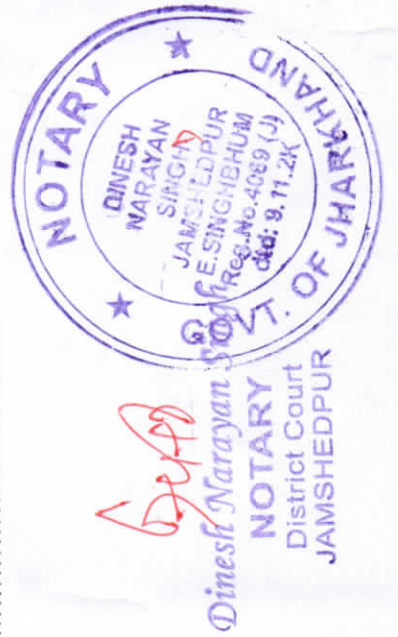 NOTARY
GOVT. OF JHARKHAND
DINESH
NARAYAN
SINGH
JAMSHEDPUR
E.SINGHBHUM
Reg.No.4089 (J)
dtd: 9.11.2K
Dinesh Narayan Singh
NOTARY
District Court
JAMSHEDPUR